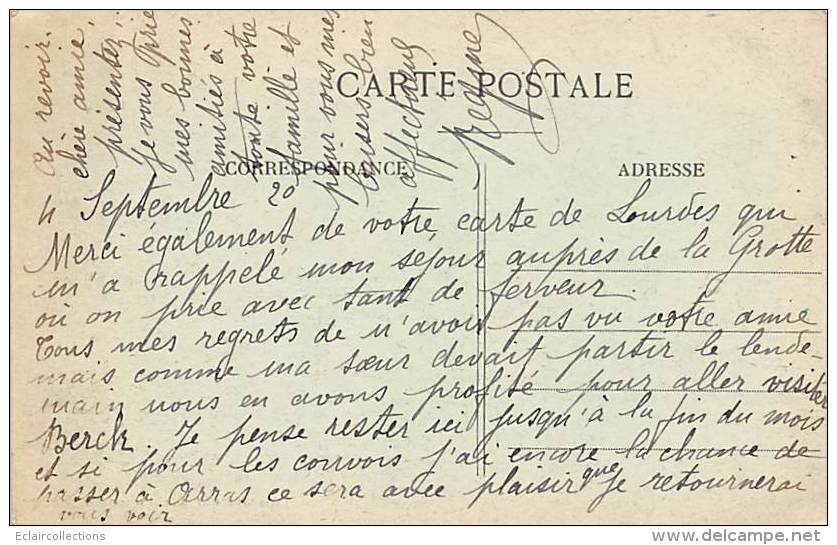 CARTE POSTALE
CORRESPONDANCE
ADRESSE
4 Septembre 20
Merci également de votre carte de Lourdes qui
m'a rappelé mon séjour auprès de la Grotte
où on prie avec tant de ferveur.
Tous mes regrets de n'avoir pas vu votre amie
mais comme ma sœur devait partir le lende-
main nous en avons profité pour aller visiter
Berck. Je pense rester ici jusqu'à la fin du mois
et si pour les convois j'ai encore la chance de
passer à Arras ce sera avec plaisir que je retournerai
vous voir
Au revoir.
chère amie,
présentez,
je vous prie
mes bonnes
amitiés à
toute votre
famille et
pour vous mes
baisers bien
affectueux
Regine
Eclaircollections
www.delcampe.net